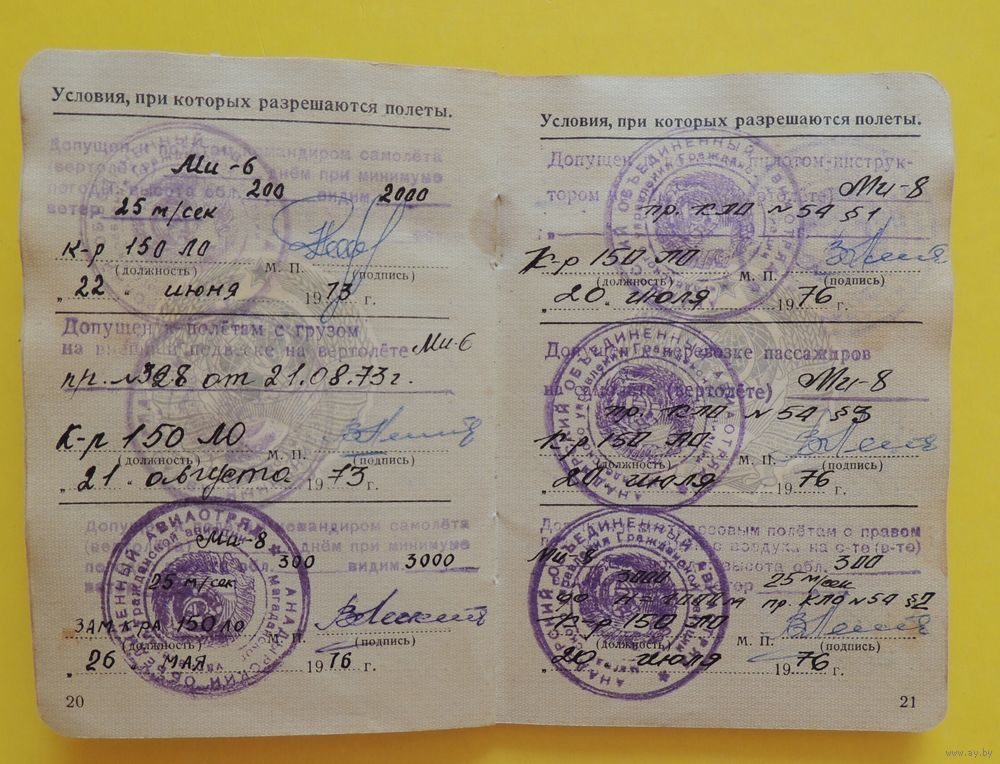 Условия, при которых разрешаются полеты.
Допущен к полётам командиром самолёта
Ми-6
(вертолёта) днём при минимуме
погоды: высота обл. 200 видим. 2000
ветер 25 м/сек
К-р 150 ЛО
(должность) М. П. (подпись)
„ 22 “ июня 1973 г.
Допущен к полётам с грузом
на внешней подвеске на вертолёте Ми-6
пр. №328 от 21.08.73г.
К-р 150 ЛО
(должность) М. П. (подпись)
„ 21 “ августа 1973 г.
Допущен командиром самолёта
Ми-8
днём при минимуме
обл. 300 видим. 3000
25 м/сек
ЗАМ К-РА 150 ЛО
(должность) М. П. (подпись)
„ 26 МАЯ 1976 г.
20
Условия, при которых разрешаются полеты.
Допущен пилотом-инструк-
тором Ми-8
пр. КЛО №54 §1
К-р 150 ЛО
(должность) М. П. (подпись)
„ 20 “ июля 1976 г.
Допущен к перевозке пассажиров
на самолёте (вертолёте) Ми-8
пр. КЛО №54 §3
К-р 150 ЛО
(должность) М. П. (подпись)
„ 20 июля 1976 г.
полётам с правом
Ми-8 воздуха на с-те (в-те)
высота обл. 300
3000 25 м/сек
пр. КЛО №54 §2
К-р 150 ЛО
М. П. (подпись)
(должность)
„ 20 “ июля 1976 г.
21
АНАДЫРСКИЙ ОБЪЕДИНЕННЫЙ АВИАОТРЯД
www.ay.by